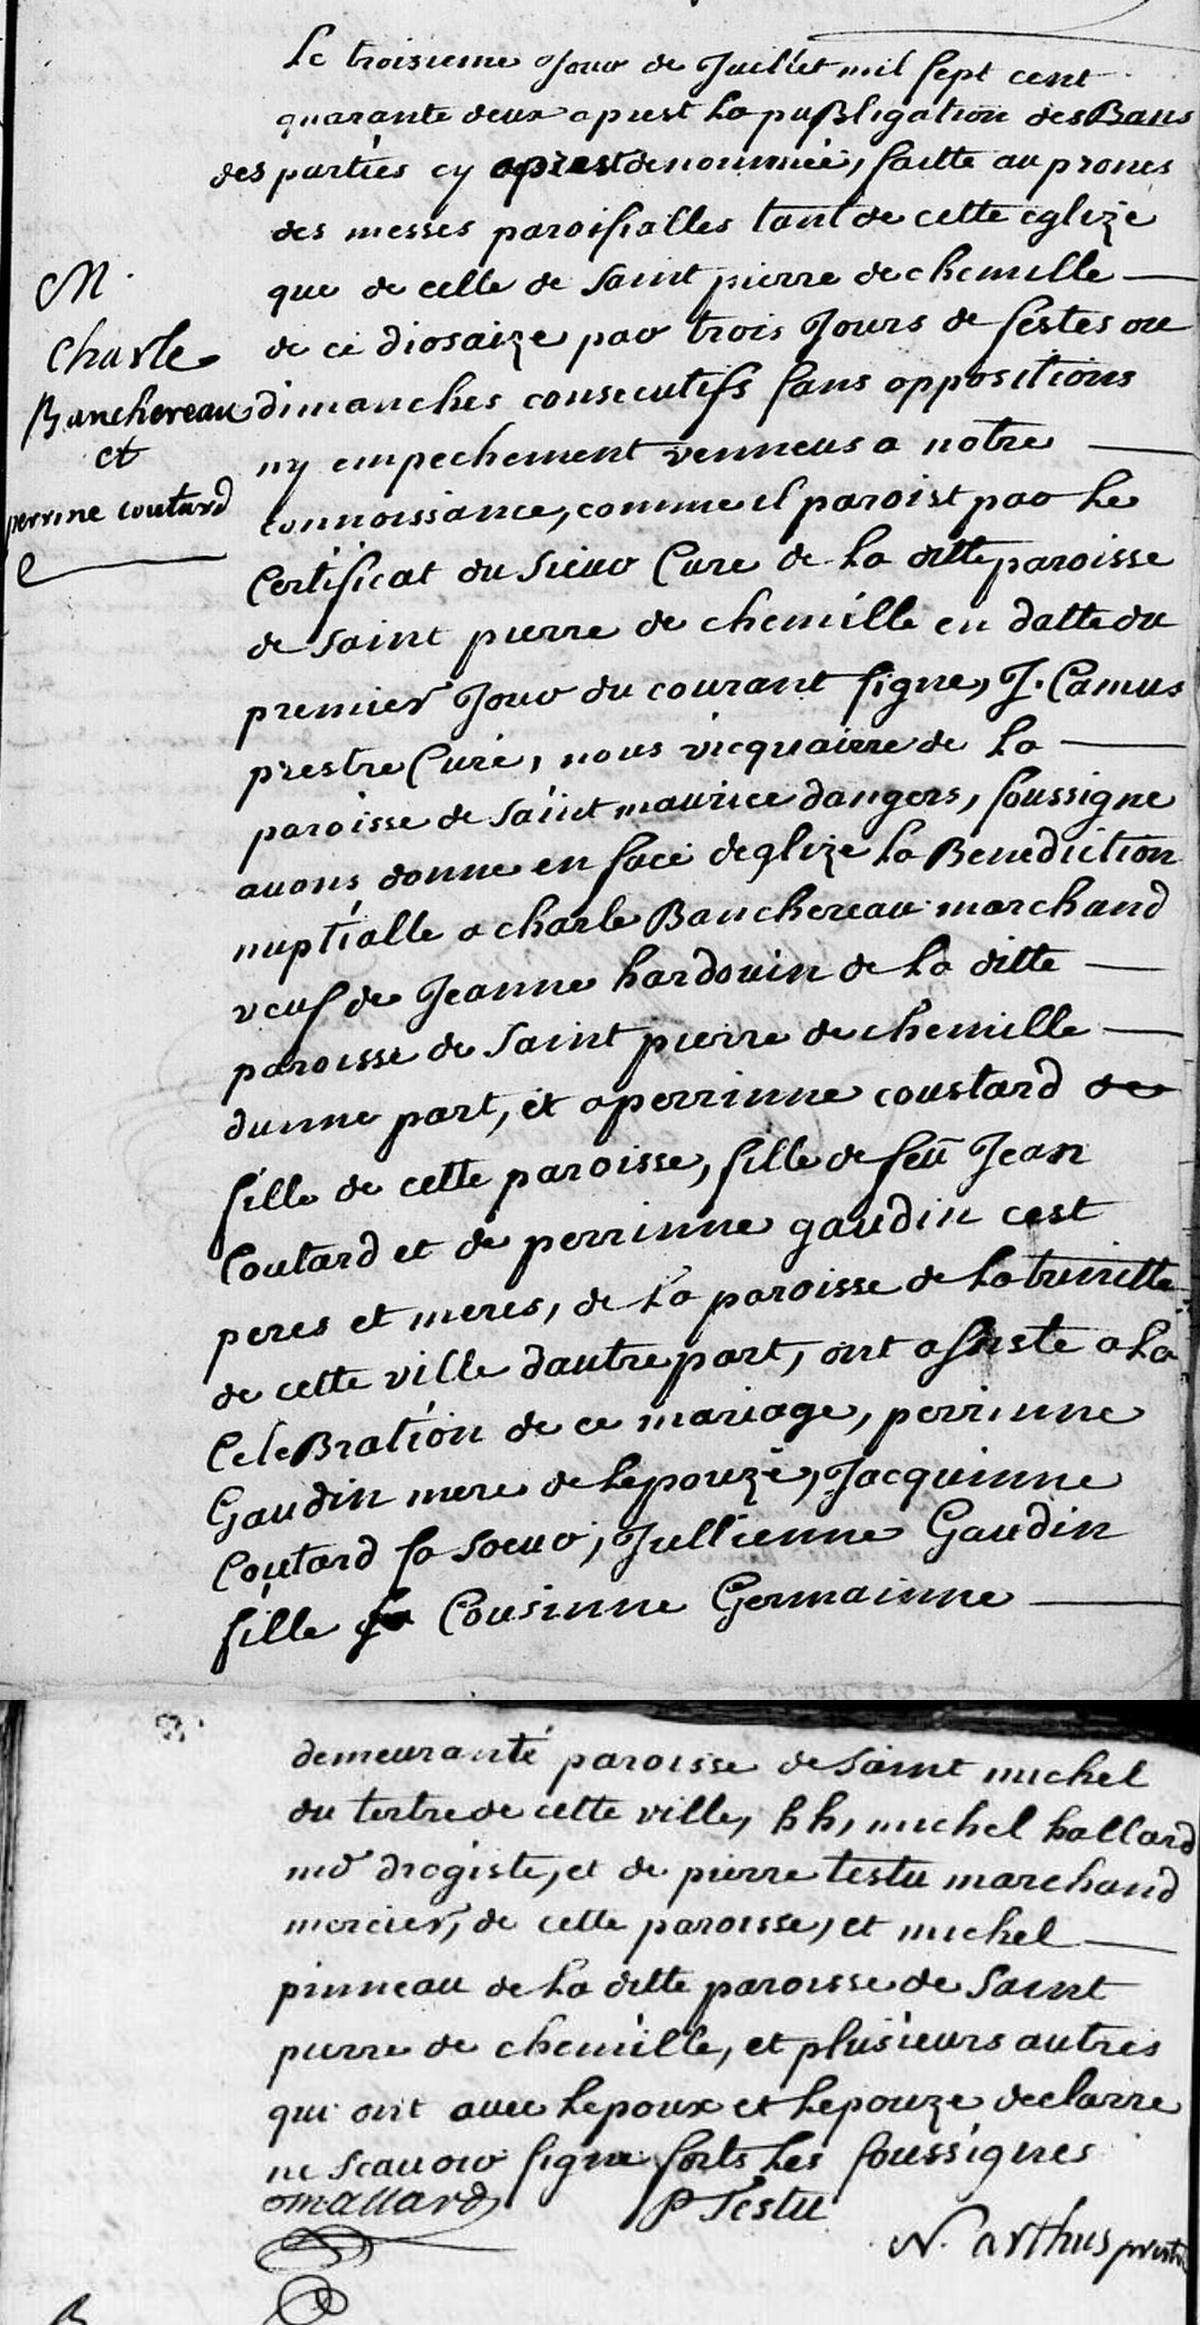 Le troisieme Jour de Juillet mil sept cent
quarante deux aprest La puBligation des Bans
des parties cy aprest denommée, faitte au prones
des messes paroissialles tant de cette eglize
que de celle de saint pierre de chemille
de ce diosaize par trois Jours de festes ou
dimanches consecutifs sans oppositions
ny empechement venneus a notre
connoissance, comme il paroist par Le
Certificat du sieur Cure de La ditte paroisse
de saint pierre de chemille en datte du
premier Jour du courant signe, J. Camus
prestre Curé, nous vicquaire de La
paroisse de saint maurice dangers, soussigne
avons donne en face deglize La Benediction
nuptialle a charle Banchereau marchand
veuf de Jeanne hardouin de La ditte
paroisse de saint pierre de chemille
dunne part, et a perrinne coustard de
fille de cette paroisse, fille de feu Jean
Coutard et de perrinne gaudin cest
peres et meres, de La paroisse de La trinitte
de cette ville dautre part, ont assiste a La
CeleBration de ce mariage, perrinne
Gaudin mere de Lepouzé, Jacquinne
Coutard sa soeur, Jullienne Gaudin
fille sa Cousinne Germainne
M.
Charle
Banchereau
et
perrine coutard
demeuranté paroisse de saint michel
du tertre de cette ville, hh, michel hallard
md drogiste, et de pierre testu marchand
mercier, de cette paroisse, et michel
pinneau de La ditte paroisse de saint
pierre de chemille, et plusieurs autres
qui ont avec Lepoux et Lepouze declarre
ne scavoir signe forts Les soussignes
mallard P Testu
N. arthus prestre
B